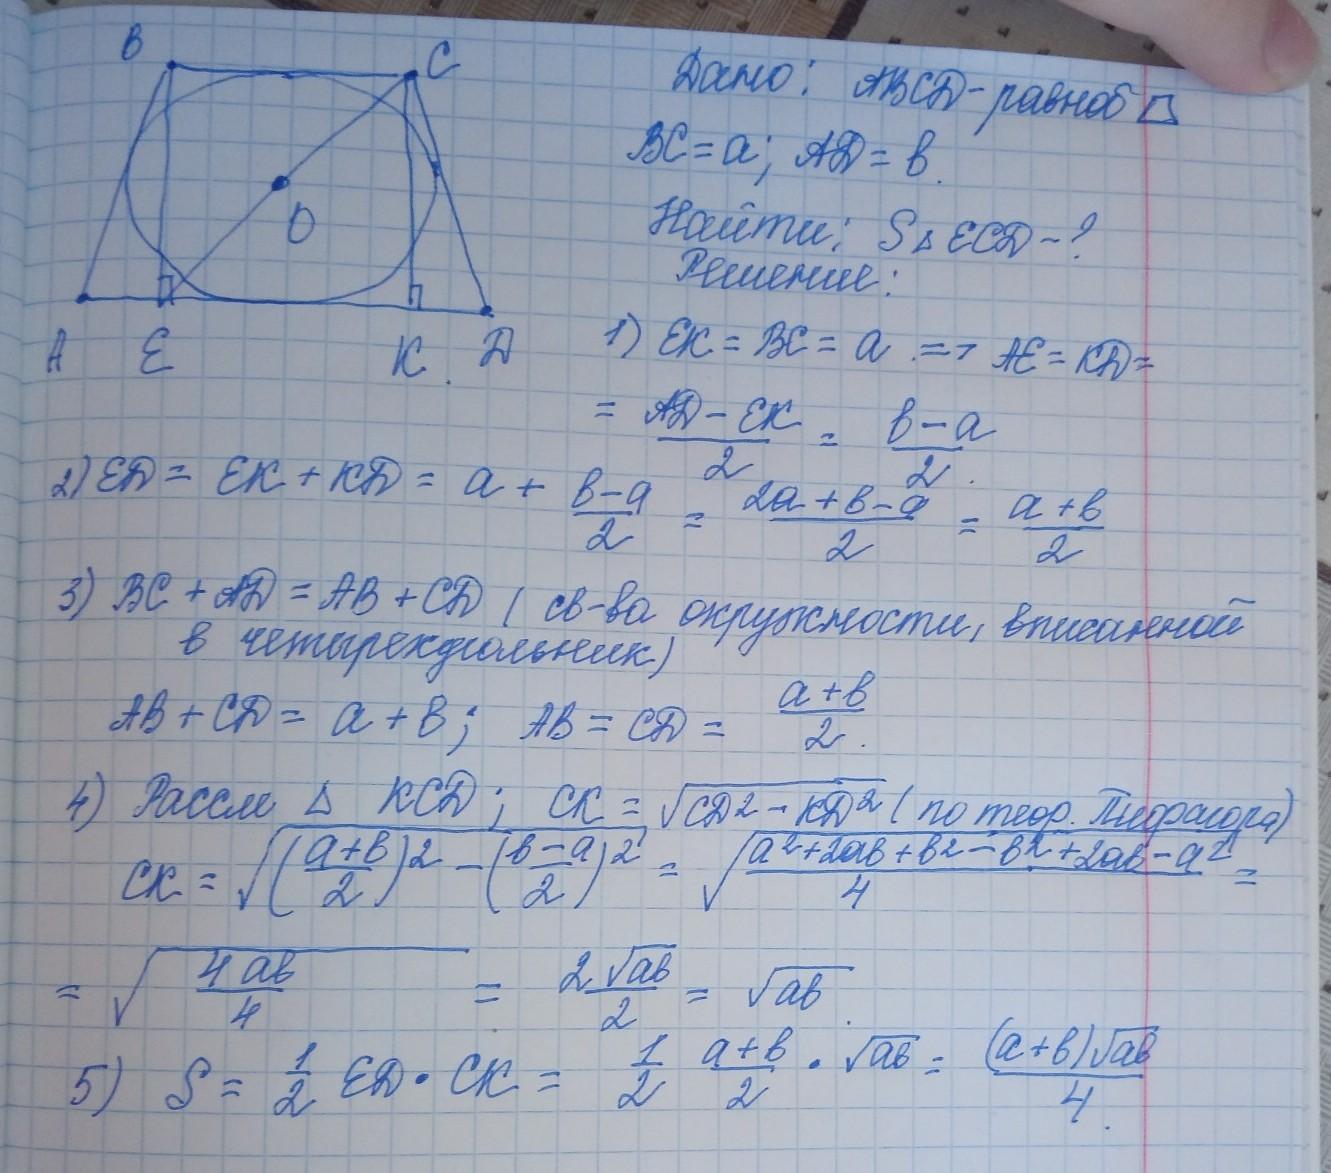 B
C
O
A E K D
Дано: ABCD-равноб
BC = a; AD = b.
Найти: S△ECD-?
Решение:
1) EK = BC = a => AE = KD =
= (AD - EK)/2 = (b-a)/2.
2) ED = EK + KD = a + (b-a)/2 = (2a+b-a)/2 = (a+b)/2
3) BC + AD = AB + CD ( св-ва окружности, вписанной
в четырехугольник)
AB + CD = a + b; AB = CD = (a+b)/2.
4) Рассм △ KCD; CK = √(CD² - KD²) ( по теор. Пифагора)
CK = √(((a+b)/2)² - ((b-a)/2)²) = √((a²+2ab+b²-b²+2ab-a²)/4) =
= √(4ab/4) = 2√ab/2 = √ab.
5) S = 1/2 ED · CK = 1/2 (a+b)/2 · √ab = (a+b)√ab/4.